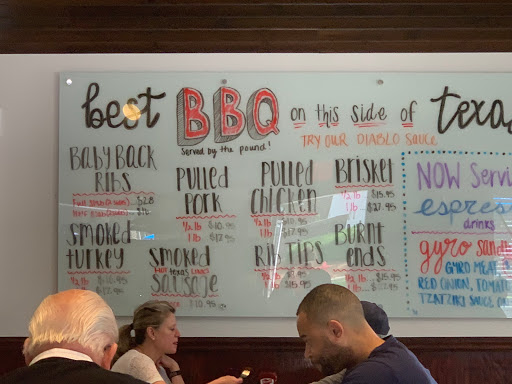 best BBQ on this side of Texas
Served by the pound!
TRY OUR DIABLO SAUCE
BABY BACK
RIBS
Full
Half
$28
PULLED
PORK
1/2 lb $10.95
1 lb $17.95
PULLED
CHICKEN
1/2 lb $10.95
1 lb $17.95
BRISKET
1/2 lb $15.95
1 lb $27.95
SMOKED
turkey
1/2 lb
1 lb
SMOKED
texas
Sausage
RIB TIPS
1/2 lb $7.95
1 lb $15.95
BURNT
ENDS
1/2 lb $15.95
1 lb
NOW Servi
espres
drinks
gyro sand
GYRO MEAT
RED ONION, TOMATO
TZATZIKI SAUCE O